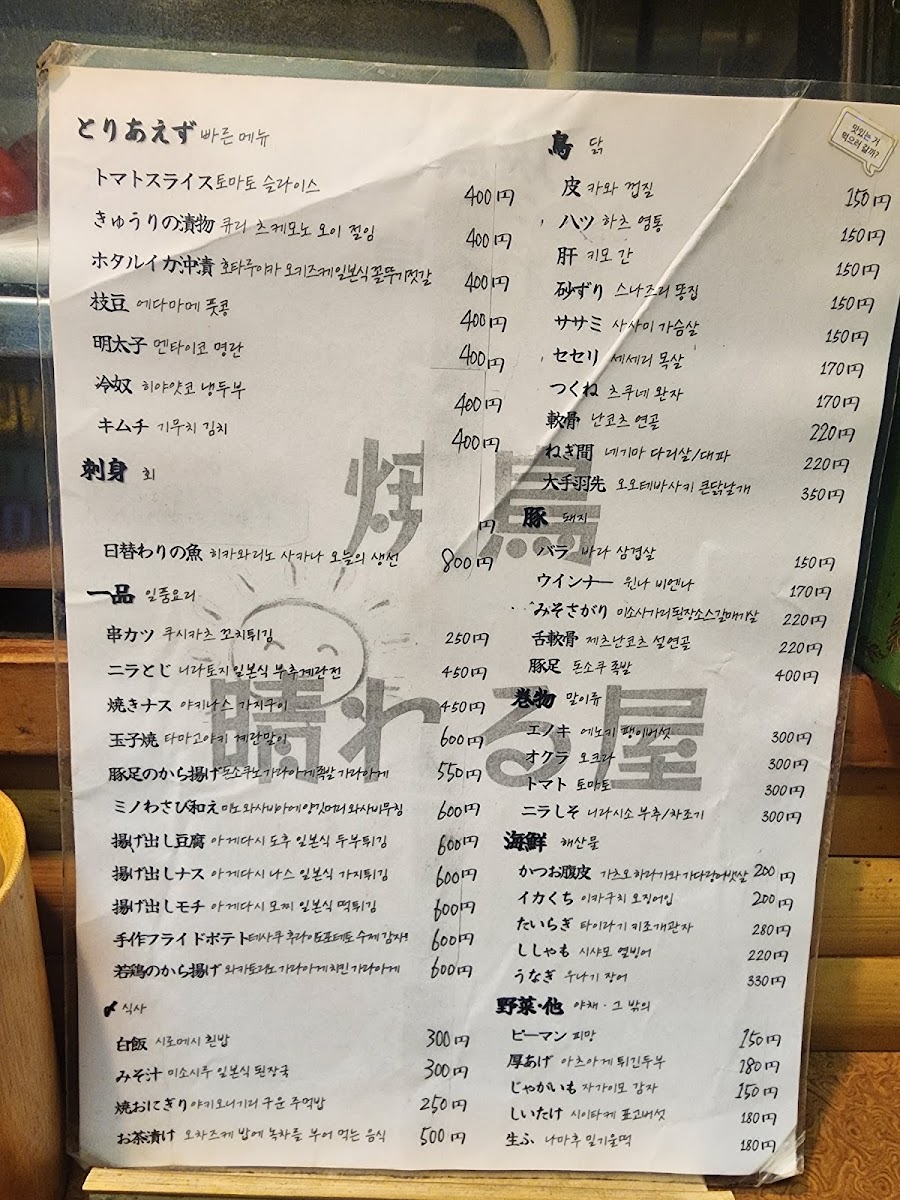 とりあえず 바른 메뉴
トマトスライス 토마토 슬라이스 400円
きゅうりの漬物 큐리 츠케모노 오이 절임 400円
ホタルイカ沖漬 호타루이카 오키즈케 일본식 꼴뚜기젓갈 400円
枝豆 에다마메 풋콩 400円
明太子 멘타이코 명란 400円
冷奴 히야얏코 냉두부 400円
キムチ 기무치 김치 400円
刺身 회
円
日替わりの魚 히카와리노 사카나 오늘의 생선 800円
一品 일품요리
串カツ 쿠시카츠 꼬치튀김 250円
ニラとじ 니라토지 일본식 부추계란전 450円
焼きナス 야키나스 가지구이 450円
玉子焼 타마고야키 계란말이 600円
豚足のから揚げ 돈소쿠노가라아게 족발 가라아게 550円
ミノわさび和え 미노 와사비아에 양깃머리 와사비무침 600円
揚げ出し豆腐 아게다시 도후 일본식 두부튀김 600円
揚げ出しナス 아게다시 나스 일본식 가지튀김 600円
揚げ出しモチ 아게다시 모찌 일본식 떡튀김 600円
手作フライドポテト 테사쿠 후라이도포테토 수제 감자 600円
若鶏のから揚げ 와카토리노 가라아게 치킨 가라아게 600円
〆 식사
白飯 시로메시 흰밥 300円
みそ汁 미소시루 일본식 된장국 300円
焼おにぎり 야키오니기리 구운 주먹밥 250円
お茶漬け 오차즈케 밥에 녹차를 부어 먹는 음식 500円
맛있는 거
먹으러 갈까?
鳥 닭
皮 카와 껍질 150円
ハツ 하츠 염통 150円
肝 키모 간 150円
砂ずり 스나즈리 똥집 150円
ササミ 사사미 가슴살 150円
セセリ 세세리 목살 170円
つくね 츠쿠네 완자 170円
軟骨 난코츠 연골 220円
ねぎ間 네기마 다리살/대파 220円
大手羽先 오오테바사키 큰닭날개 350円
豚 돼지
バラ 바라 삼겹살 150円
ウインナー 윈나 비엔나 170円
みそさがり 미소사가리 된장소스갈매기살 220円
舌軟骨 제츠난코츠 설연골 220円
豚足 돈소쿠 족발 400円
巻物 말이류
エノキ 에노키 팽이버섯 300円
オクラ 오크라 300円
トマト 토마토 300円
ニラしそ 니라시소 부추/차조기 300円
海鮮 해산물
かつお腹皮 가츠오하라가와 가다랑어뱃살 200円
イカくち 이카구치 오징어입 200円
たいらぎ 타이라기 키조개관자 280円
ししゃも 시샤모 열빙어 220円
うなぎ 우나기 장어 330円
野菜・他 야채・그 밖의
ピーマン 피망 150円
厚あげ 아츠아게 튀긴두부 180円
じゃがいも 자가이모 감자 150円
しいたけ 시이타케 표고버섯 180円
生ふ 나마후 밀기울떡 180円
焼鳥
晴れる屋